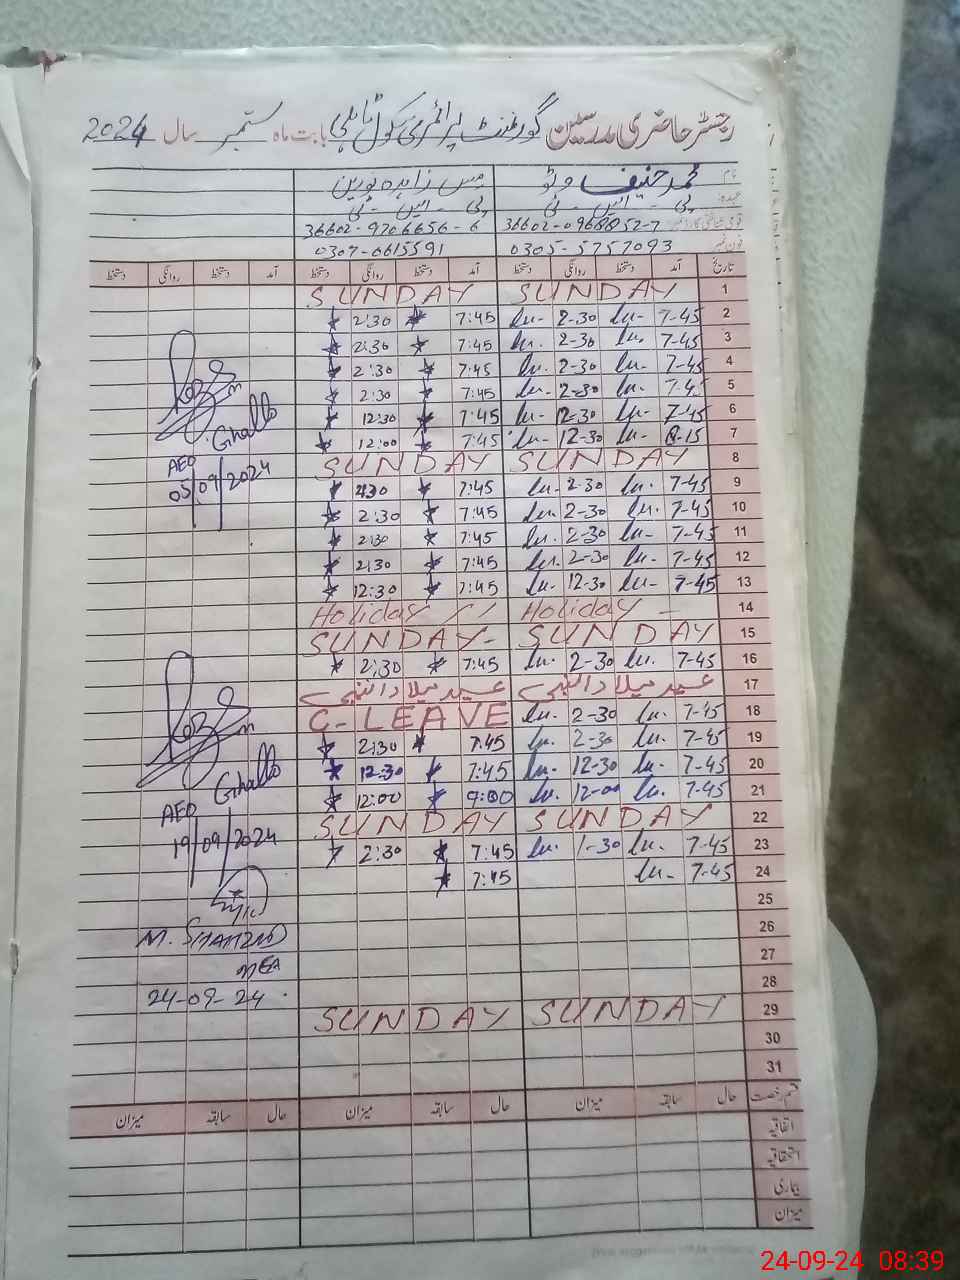 رجسٹر حاضری مدرسین گورنمنٹ پرائمری سکول ٹاہلی بابت ماہ ستمبر سال 2024
نام محمد حنیف وٹو مس زاہدہ نورین
عہدہ پی - ایس - ٹی پی - ایس - ٹی
قومی شناختی کارڈ نمبر 36602-0968852-7 36602-9706656-6
فون نمبر 0305-5757093 0307-0615591
تاریخ آمد دستخط روانگی دستخط آمد دستخط روانگی دستخط آمد دستخط روانگی دستخط
1 SUNDAY SUNDAY
2 7-45 2-30 7:45 2:30
3 7-45 2-30 7:45 2:30
4 7-45 2-30 7:45 2:30
5 7-45 2-30 7:45 2:30
6 7-45 12-30 7:45 12:30
7 8-15 12-30 7:45 12:00
8 SUNDAY SUNDAY
9 7-45 2-30 7:45
10 7-45 2-30 7:45 2:30
11 7-45 2-30 7:45 2:30
12 7-45 2-30 7:45 2:30
13 7-45 12-30 7:45 12:30
14 Holiday Holiday
15 SUNDAY SUNDAY
16 7-45 2-30 7:45 2:30
17 عید میلادالنبی عید میلادالنبی
18 7-45 2-30 C-LEAVE
19 7-45 2-30 7:45 2:30
20 7-45 12-30 7:45 12:30
21 7-45 12-00 9:00 12:00
22 SUNDAY SUNDAY
23 7-45 1-30 7:45 2:30
24 7-45 7:45
25
26
27
28
29 SUNDAY SUNDAY
30
31
Ghallo
AEO
05/09/2024
Ghallo
AEO
19/09/2024
M. SHAHZAD
MEA
24-09-24
قسم رخصت حال سابقہ میزان حال سابقہ میزان حال سابقہ میزان
اتفاقیہ
استحقاقیہ
بیماری
میزان
24-09-24 08:39